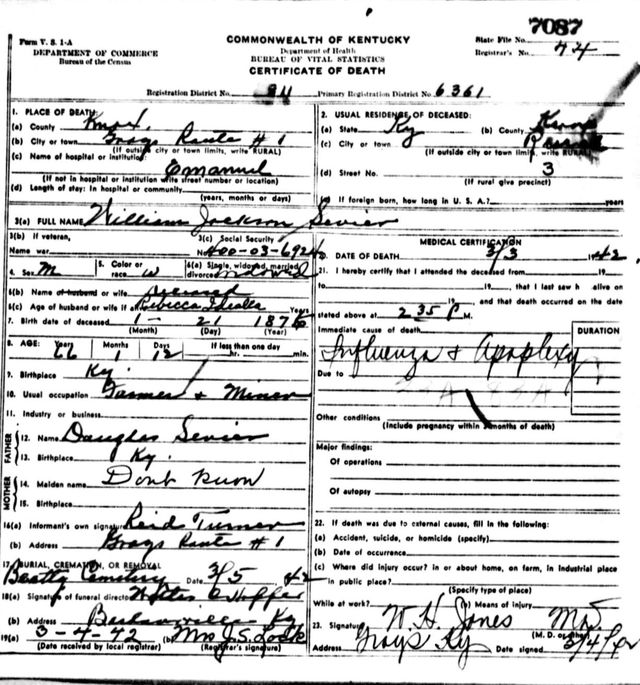 7087
Form V. S. 1-A
DEPARTMENT OF COMMERCE
Bureau of the Census
COMMONWEALTH OF KENTUCKY
Department of Health
BUREAU OF VITAL STATISTICS
CERTIFICATE OF DEATH
State File No.
Registrar's No. 44
Registration District No. 911 Primary Registration District No. 6361
1. PLACE OF DEATH:
(a) County Knox
(b) City or town Grays Route #1
(If outside city or town limits, write RURAL)
(c) Name of hospital or institution:
Emanuel
(If not in hospital or institution write street number or location)
(d) Length of stay: In hospital or community
(years, months or days)
2. USUAL RESIDENCE OF DECEASED:
(a) State Ky (b) County Knox
(c) City or town
(If outside city or town limits, write RURAL)
(d) Street No. 3
(If rural give precinct)
(e) If foreign born, how long in U. S. A.? years
3(a) FULL NAME William Jackson Sevier
3(b) If veteran,
Name war
3(c) Social Security
No. 400-03-6924
4. Sex M
5. Color or
race w
6(a) Single, widowed, married,
divorced widowed
6(b) Name of husband or wife Deceased
6(c) Age of husband or wife if alive Rebecca Years
7. Birth date of deceased 1 - 21 187
(Month) (Day) (Year)
8. AGE: Years 66 Months 1 Days 12 If less than one day
hr. min.
9. Birthplace Ky.
10. Usual occupation Farmer & Miner
11. Industry or business
FATHER
12. Name Douglas Sevier
13. Birthplace Ky.
MOTHER
14. Maiden name Dont Know
15. Birthplace
16(a) Informant's own signature Reid Turner
(b) Address Grays Route #1
17. BURIAL, CREMATION, OR REMOVAL
Beatty Cemetery Date 3/5 42
18(a) Signature of funeral director
(b) Address Barbourville Ky
19(a) 3-4-42 (b) Mrs J. S. Lock
(Date received by local registrar) (Registrar's signature)
MEDICAL CERTIFICATION
20. DATE OF DEATH 3/3 1942
21. I hereby certify that I attended the deceased from 19
to 19 , that I last saw h alive on
19 , and that death occurred on the date
stated above at 2 35 P M.
Immediate cause of death
DURATION
Influenza & Apoplexy
Due to
Other conditions
(Include pregnancy within 3 months of death)
Major findings:
Of operations
Of autopsy
22. If death was due to external causes, fill in the following:
(a) Accident, suicide, or homicide (specify)
(b) Date of occurrence
(c) Where did injury occur? in or about home, on farm, in industrial place
in public place?
(Specify type of place)
While at work? (e) Means of injury
23. Signature W. H. Jones M.D.
(M. D. or other)
Grays Ky Date signed 3/4/42